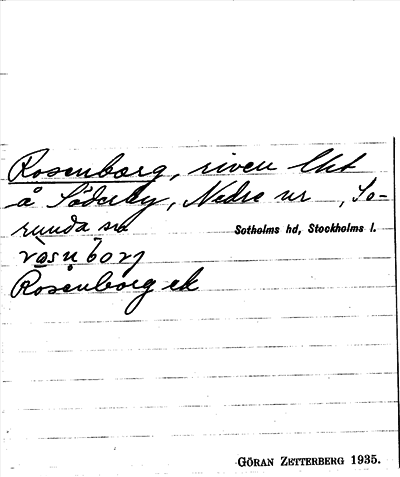 Rosenborg, riven lht
å Söderby, Nedre nr , So-
runda sn Sotholms hd, Stockholms l.
ròsnbòrj
Rosenborg ek
GÖRAN ZETTERBERG 1935.